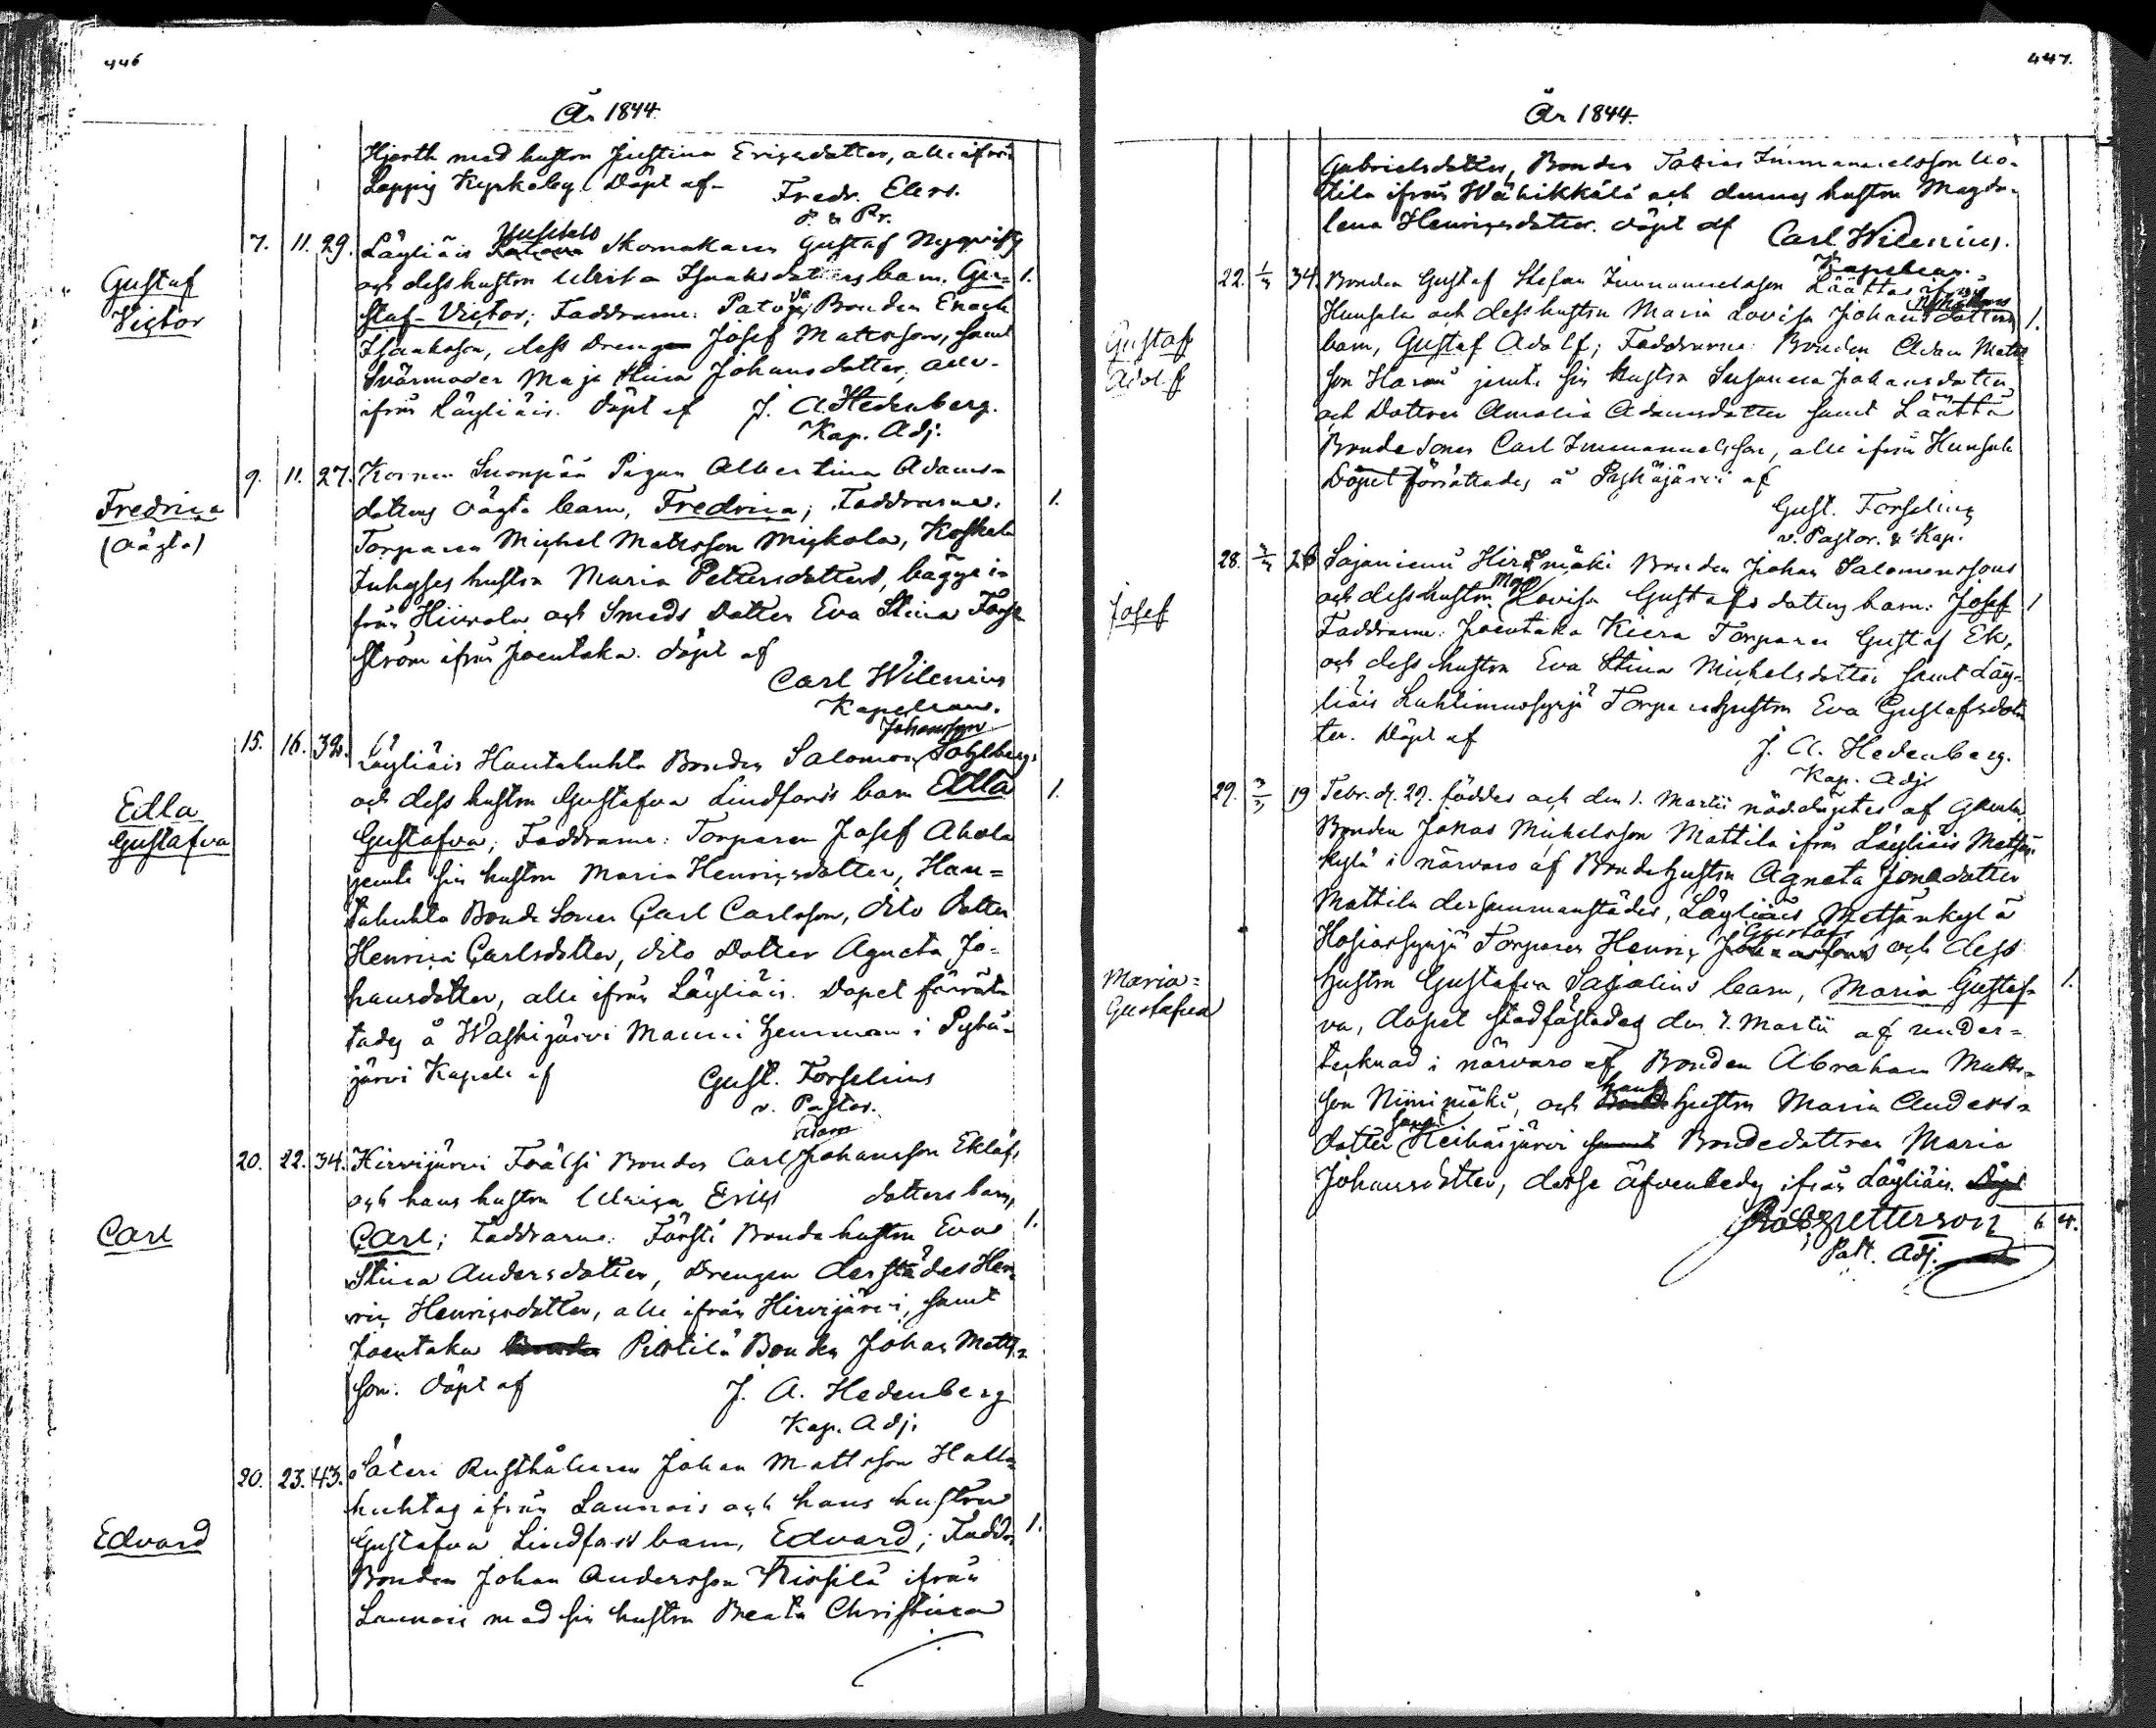 446
År 1844.
Hjorth med hustru Justina Ericsdotter, alle ifrån
Loppis Kyrkoby. Döpt af
Fredr. Elers.
P. & Pr.
7. 11. 29. Läyliäis Skomakaren Gustaf Nyqvists
och dess hustru Ulrika Isaaksdotters barn, Gu- 1.
Gustaf
Victor
staf-Victor; Faddrarne: Patova Bonden Enoch
Isaaksson, dess Dreng Josef Matsson, samt
Svärmoder Maja Stina Johansdotter, alle
ifrån Läyliäis. Döpt af J. A. Hedenberg.
Kap. Adj.
9. 11. 27. Suonpää Pigan Albertina Adams-
Fredrica
(oägta)
dotters oägta barn, Fredrica; Faddrarne: 1.
Torparen Michel Matsson Myskola, Koskela
Inhyses hustru Maria Pettersdotter, bägge i-
från Hirvola och Smeds Dotter Eva Stina Fors-
ström ifrån Joentaka. döpt af
Carl Wilenius
Kapellan.
Johansson
15. 16. 32. Läyliäis Hautakuhta Bonden Salomon Sahlbergs
Edla
Gustafva
och dess hustru Gustafva Lindfors's barn Edla 1.
Gustafva; Faddrarne: Torparen Josef Ahola
jemte sin hustru Maria Henricsdotter, Hau-
takuhta Bonde Sonen Carl Carlsson, dito Dotter
Henrica Carlsdotter, dito Dotter Agneta Jo-
hansdotter, alle ifrån Läyliäis. Dopet förrät-
tades å Waskijärvi Manni hemman i Pyhä-
järvi Kapell af Gust. Forselius
v. Pastor.
Adam
20. 22. 34. Hirvijärvi Bonden Carl Johansson Eklöfs
och hans hustru Ulrica Erics dotters barn,
Carl
Carl; Faddrarne: Bonde hustru Eva 1.
Stina Andersdotter, Drengen derstädes Hen-
ric Henricsdotter, alle ifrån Hirvijärvi, samt
Joentaka Bonden Johan Matts-
son. Döpt af J. A. Hedenberg
Kap. Adj.
20. 23. 43. Säteri Rusthållaren Johan Mattsson Hatta-
huhtas ifrån Launois och hans hustru
Edvard
Gustafva Lindfors's barn, Edvard; Faddr. 1.
Bonden Johan Andersson ifrån
Launois med sin hustru Beata Christina
447.
År 1844.
Gabrielsdotter, Bonden Tobias Immanuelsson Uo-
tila ifrån Wähikkälä och dennes hustru Magda-
lena Henricsdotter. döpt af Carl Wilenius.
Kapellan.
22. 34. Bonden Gustaf Stefan Immanuelsson Läättä
Hunsala och dess hustru Maria Lovisa Johansdotters 1.
Gustaf
Adolf
barn, Gustaf Adolf; Faddrarne: Bonden Adam Mats-
son jemte sin hustru Susanna Johansdotter
och Dottren Amalia Adamsdotter samt Läättä
Bonde Sonen Carl Immanuelsson, alle ifrån Hunsala
Dopet förrättades å Pyhäjärvi af
Gust. Forselius
v. Pastor. & Kap.
28. 26 Sajaniemi Hirsmäki Bonden Johan Salomonssons
och dess hustru Lovisa Gustafsdotters barn: Josef 1
Josef
Faddrarne: Joentaka Kiera Torparen Gustaf Ek,
och dess hustru Eva Stina Michelsdotter samt Läy-
liäis Torpare hustru Eva Gustafsdot-
ter. Döpt af J. A. Hedenberg.
Kap. Adj.
29. 19 Febr. d. 29. föddes och den 1. Martii nöddöptes af
Bonden Jonas Michelsson Mattila ifrån Läyliäis Metsän-
kylä i närvaro af Bondehustru Agneta Jonædotter
Mattila dersammanstädes, Läyliäis Metsänkylä
Gustafs
Torparen Henric och dess
Maria-
Gustafva
hustru Gustafva Sajalins barn, Maria Gustaf- 1.
va, dopet stadfästades den 7. Martii af under-
tecknad i närvaro af Bonden Abraham Matts-
hans
son Niinimäki, och hustru Maria Anders-
samt
dotter Keihäsjärvi Bondedottren Maria
Johansdotter, desse äfvenledes ifrån Läyliäis.
Petterson 6 4.
Past. Adj.